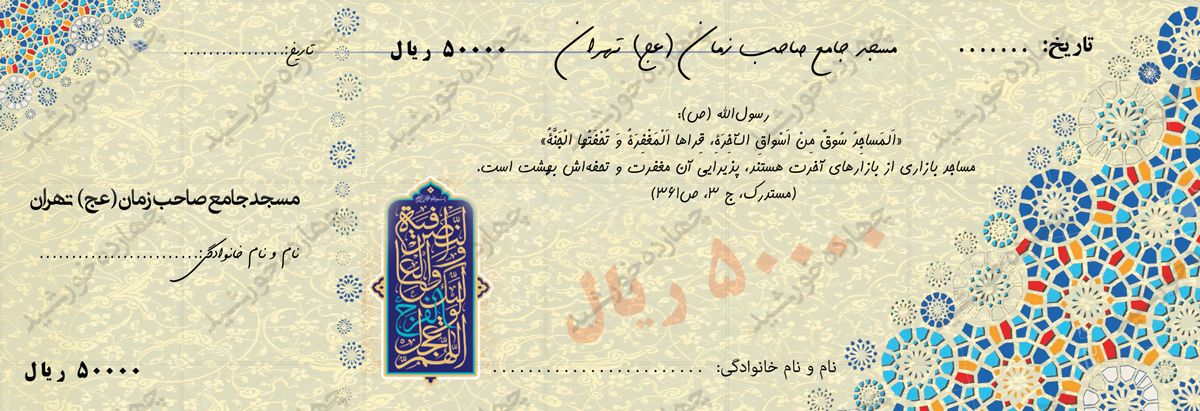 تاریخ: .......
مسجد جامع صاحب زمان (عج) تهران
۵۰۰۰۰ ریال
رسول‌الله (ص):
«اَلمَساجِدُ سُوقٌ مِنْ اَسْواقِ الآخِرَةِ، قِراها اَلْمَغْفِرَةُ وَ تُحْفَتُها الْجَنَّةُ»
مساجد بازاری از بازارهای آخرت هستند، پذیرایی آن مغفرت و تحفه‌اش بهشت است.
(مستدرک، ج ۳، ص۳۶۱)
۵۰۰۰۰ ریال
نام و نام خانوادگی: ........................
اللهم عجل لولیک الفرج والعافیة والنصر
تاریخ:.................
مسجد جامع صاحب زمان (عج) تهران
نام و نام خانوادگی:........................
۵۰۰۰۰ ریال
چهارده خورشید